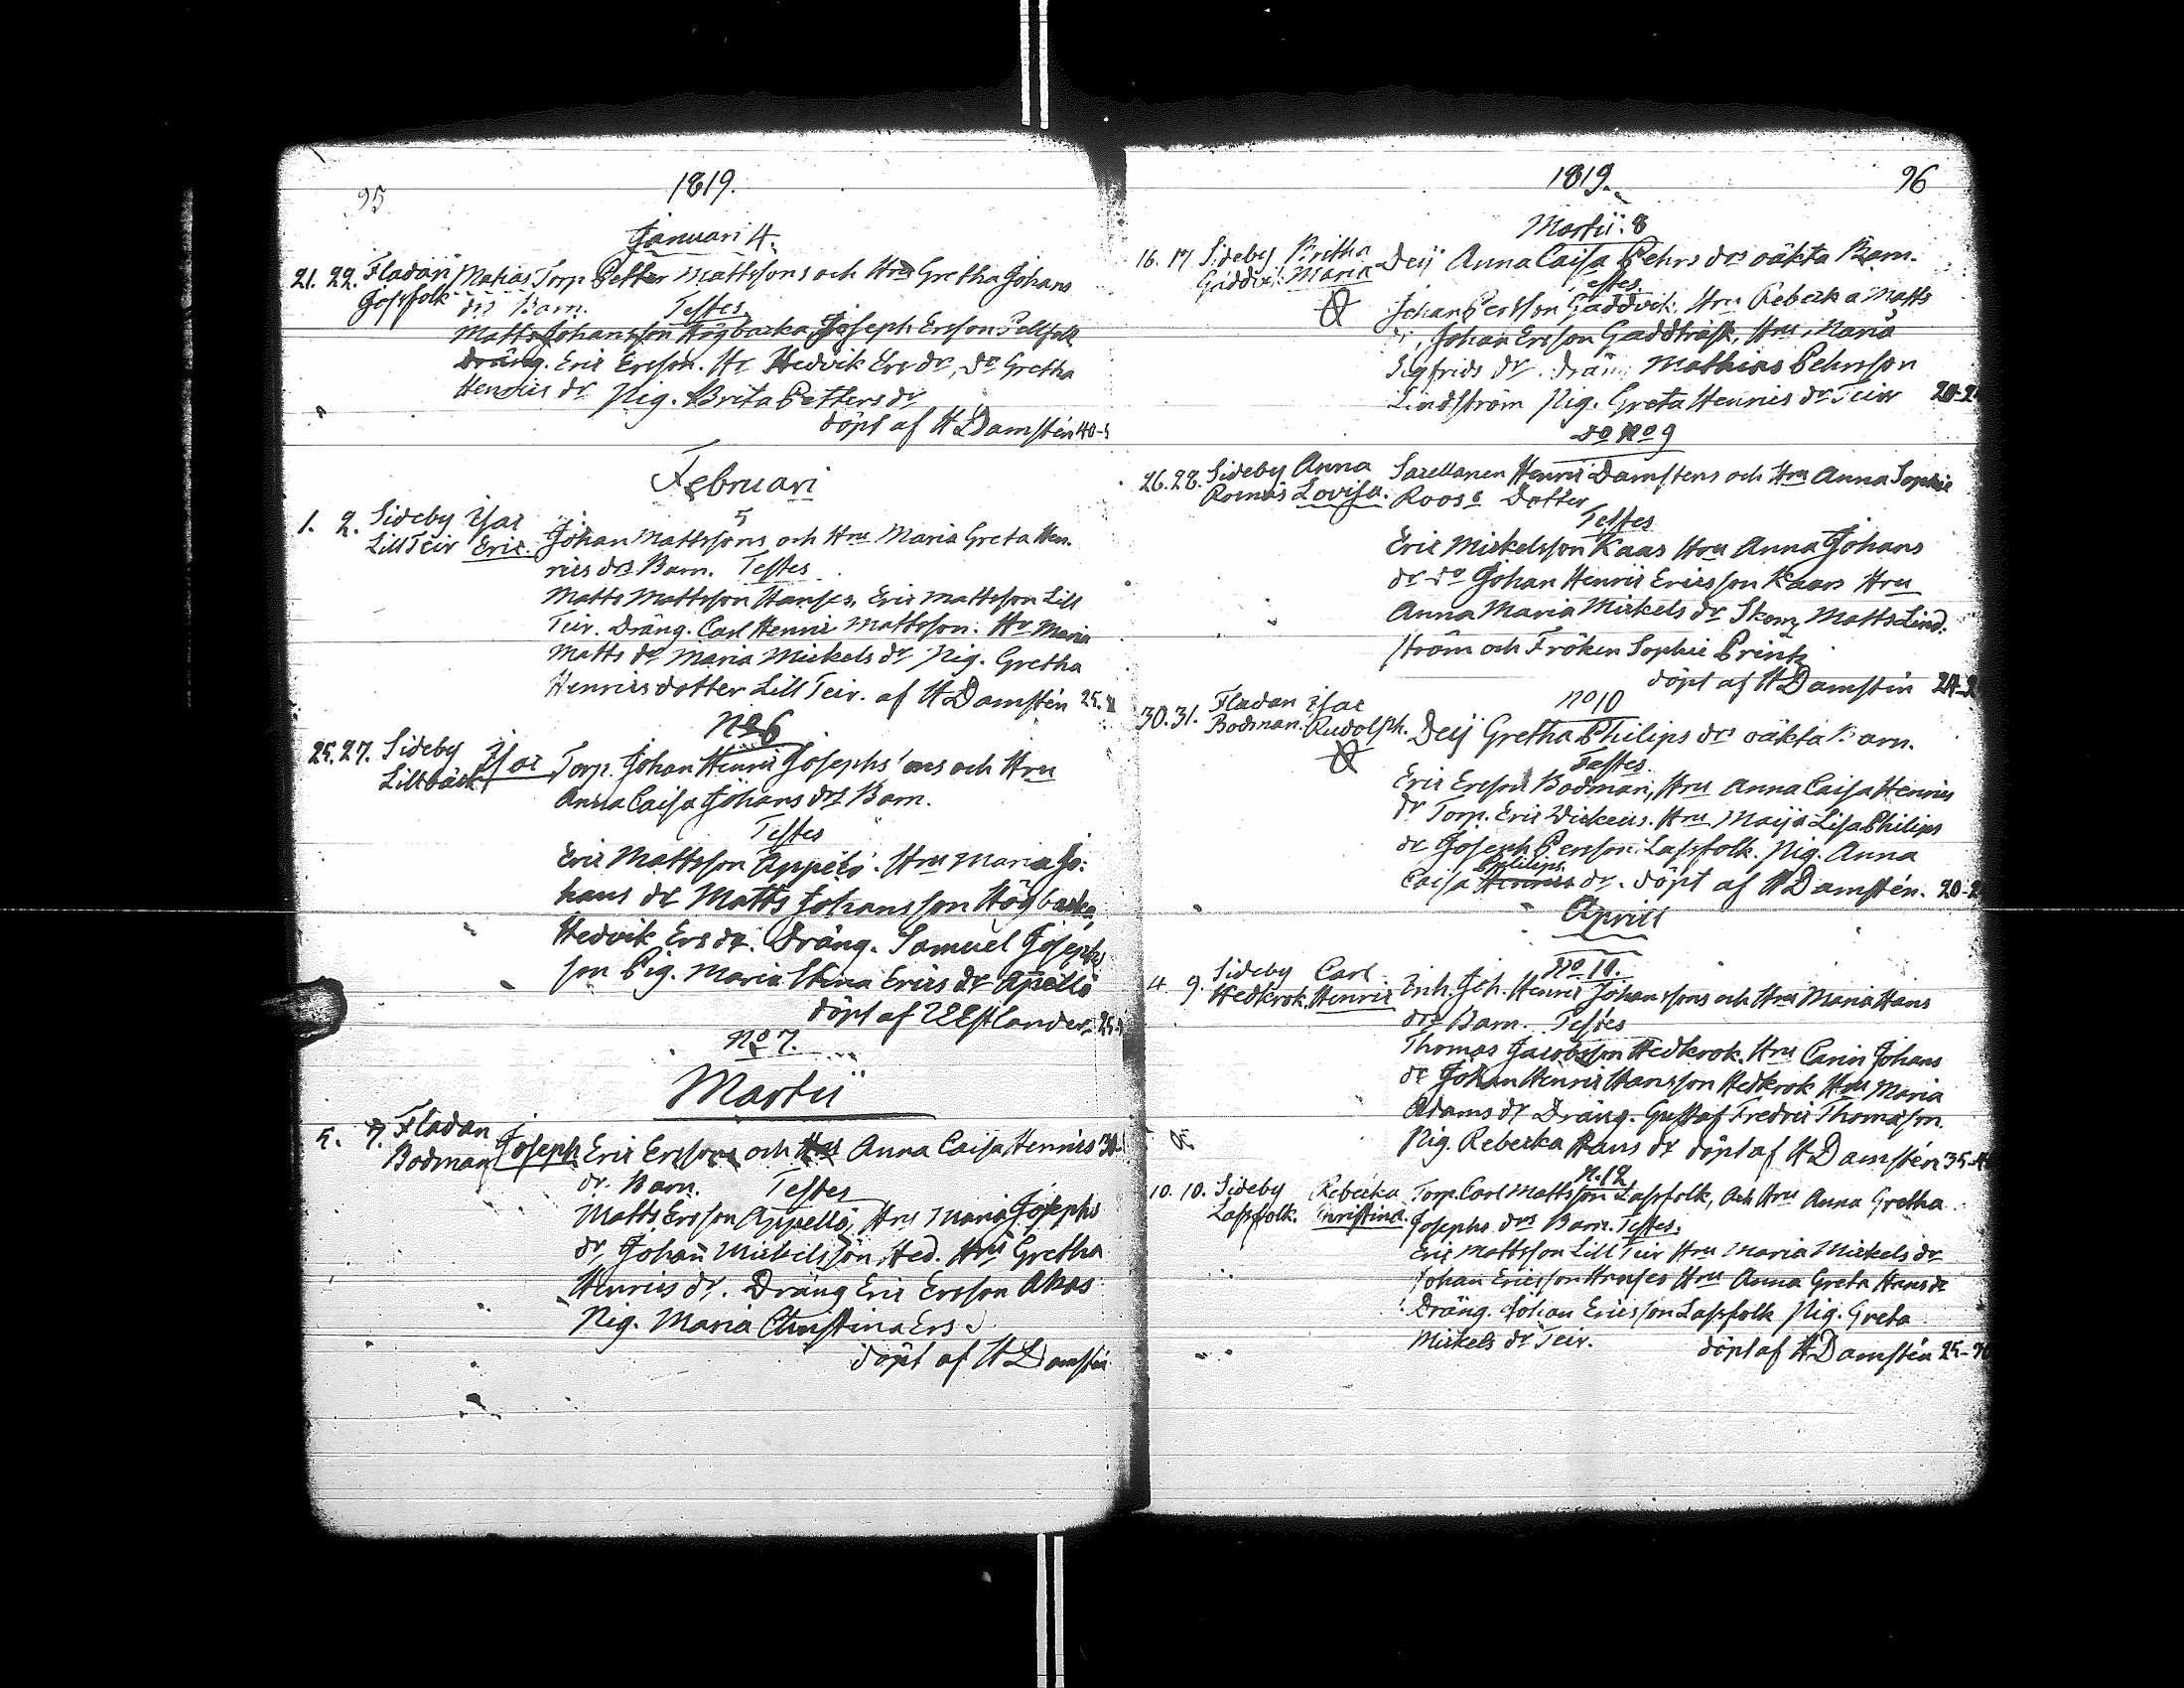 95
1819.
Januari 4.
21. 22. Fladan Matias Torp. Petter Mattssons och Hru Gretha Johans
drs Barn. Testes
Matts Johansson Högbacka, Joseph Ersson
Dräng. Eric Ersson. Hr Hedvik Ers dr, do Gretha
Henrics dr Pig. Brita Petters dr
döpt af H Damstén 40-
Februari
5
1. 2. Sideby Isac
Lill Teir Eric. Johan Mattssons och Hru Maria Greta Hen-
rics drs Barn. Testes
Matts Mattsson Hanses, Eric Mattsson Lill
Teir. Dräng. Carl Henric Mattsson. Hr Maria
Matts dr Maria Mickels dr Pig. Gretha
Henricsdotter Lill Teir. af H Damstén 25.
No 6
25. 27. Sideby Isac Torp. Johan Henric Josephsons och Hru
Lillbäck Anna Caisa Johans drs Barn.
Testes
Eric Mattsson Appelö. Hru Maria Jo:
hans dr Matts Johansson Högbacka,
Hedvik Ers dr. Dräng. Samuel Josephs
son Pig. Maria Stina Erics dr Apello
döpt af Estlander 25.
No 7.
Martii
5. 7. Fladan
Bodman Joseph Eric Erssons och Hus Anna Caisa Henrics 30.
dr. Barn. Testes
Matts Ersson Appellö, Hru Maria Josephs
dr, Johan Mickelsson, Hed. Hru Gretha
Henrics dr. Dräng Eric Ersson
Pig. Maria Christina Ers d
döpt af H Damstén
1819.
96
Martii: 8
16. 17 Sideby Britha
Gaddvik: Maria Deij Anna Caisa Pehrs drs oäkta Barn.
Testes
Johan Persson Gaddvik, Hru Rebecka Matts
dr, Johan Ersson Gaddträsk, Hru Maria
Sigfrids dr. drän: Mathias Pehrsson
Lindström Pig. Greta Henrics dr Teir 20-2
do No 9
26. 28. Sideby Anna Sacellanen Henric Damstens och Hru Anna Sophie
Romas Lovisa. Roos's Dotter
Testes
Eric Mickelsson Kaas Hru Anna Johans
dr do Johan Henric Ericsson Kaas Hru
Anna Maria Mickels dr Skom Matts Lind:
ström och Fröken Sophie Printz
döpt af H Damstén 24-2
No 10
30. 31. Fladan Isac
Bodman. Rudolph. Deij Gretha Philips drs oäkta Barn.
Testes
Eric Ersson Bodman, Hru Anna Caisa Henrics
dr Torp. Eric Hru Maija Lisa Philips
dr Joseph Persson Lassfolk. Pig. Anna
Philips
Caisa Henrics dr. döpt af H Damstén. 20-2
Aprill
No 11.
4 9. Sideby Carl
Hedkrok. Henric Inh. Joh. Henric Johanssons och Hru Maria Hans
drs Barn. Testes
Thomas Jacobsson Hedkrok. Hru Carin Johans
dr Johan Henric Hansson Hedkrok Hru Maria
Adams dr Dräng. Gustaf Fredric Thomasson.
Pig. Rebecka Hans dr döpt af H Damstén 35-4
N. 12
10. 10. Sideby Rebecka Torp. Carl Mattsson Lassfolk, och Hru Anna Gretha
Lassfolk. Christina. Josephs drs Barn. Testes.
Eric Mattsson Lill Teir Hru Maria Mickels dr
Johan Ericsson Hanses Hru Anna Greta Hans dr
Dräng. Johan Ericsson Lassfolk Pig. Greta
Mickels dr Teir. döpt af H Damstén 25-30